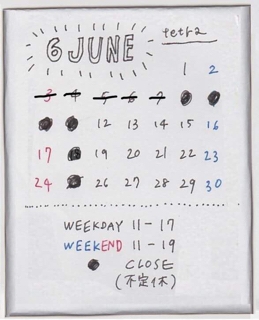 6 JUNE
tetra
1 2
3 4 5 6 7
12 13 14 15 16
17 19 20 21 22 23
24 26 27 28 29 30
WEEKDAY 11-17
WEEKEND 11-19
● CLOSE
(不定休)